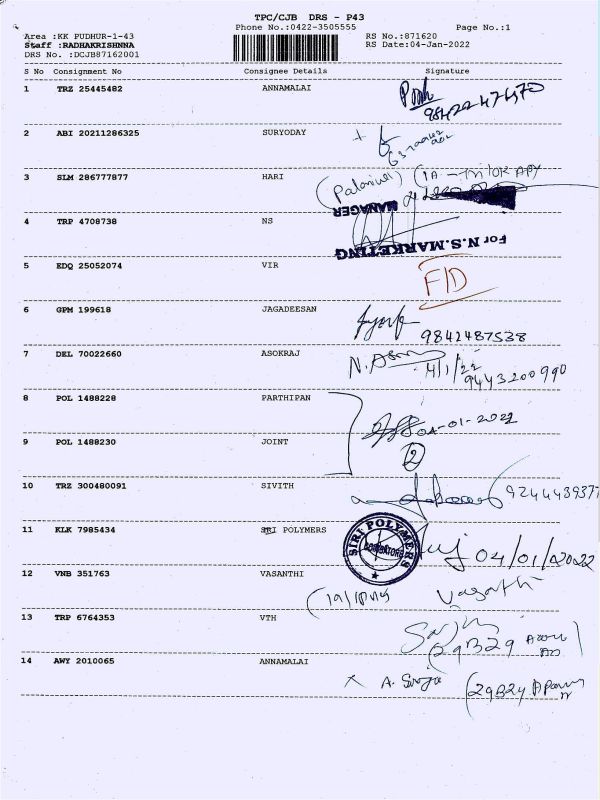 TPC/CJB DRS - P43
Phone No.:0422-3505555
Page No.:1
Area :KK PUDHUR-1-43
RS No.:871620
Staff :RADHAKRISHNNA
RS Date:04-Jan-2022
DRS No. :DCJB87162001
S No Consignment No Consignee Details Signature
1 TRZ 25445482 ANNAMALAI
2 ABI 20211286325 SURYODAY
3 SLM 286777877 HARI
MANAGER
4 TRP 4708738 NS
For N.S. MARKETING
5 EDQ 25052074 VIR F/D
6 GPM 199618 JAGADEESAN
9842487538
7 DEL 70022660 ASOKRAJ
4/1/22
9443200990
8 POL 1488228 PARTHIPAN
04-01-2022
9 POL 1488230 JOINT
2
10 TRZ 300480091 SIVITH
11 KLK 7985434 SRI POLYMERS
SIRI POLYMERS COIMBATORE
04/01/2022
12 VNB 351763 VASANTHI
Vasanthi
13 TRP 6764353 VTH
29B29
14 AWY 2010065 ANNAMALAI
29B24